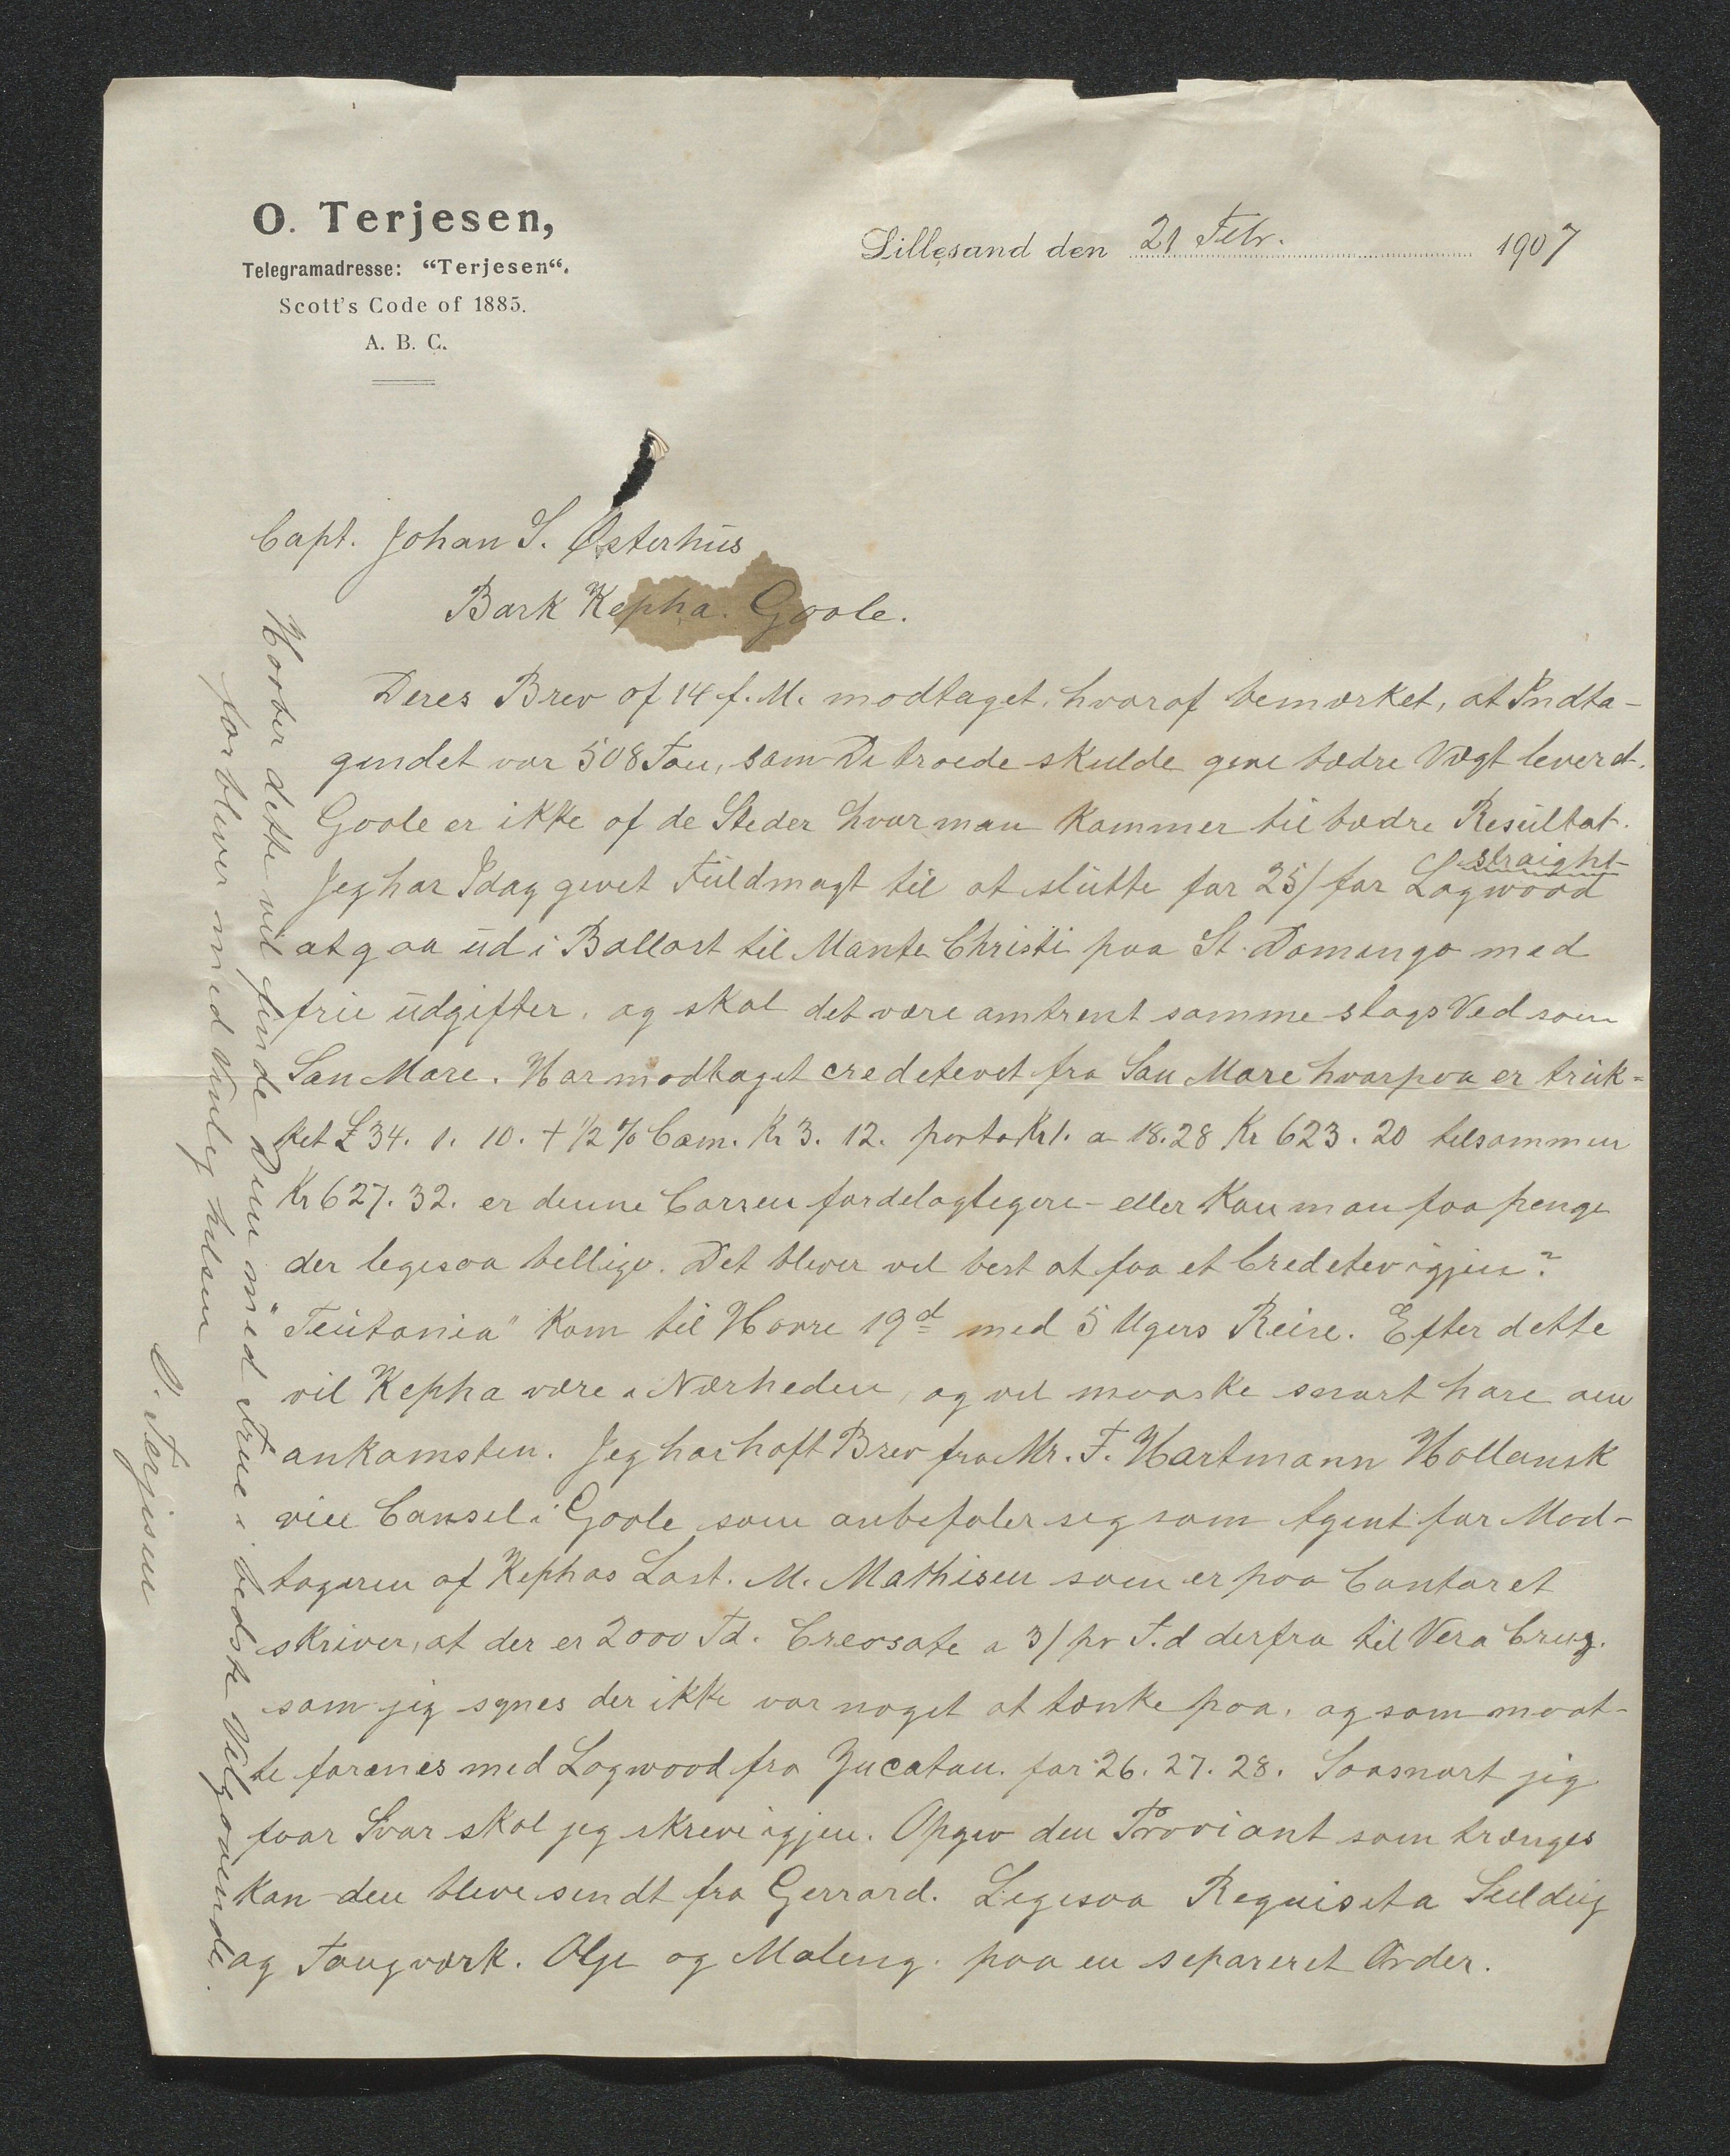 O. Terjesen,
Telegramadresse: “Terjesen“.
Scott's Code of 1885.
A. B. C.
Lillesand den 21 Febr. 1907
Capt. Johan S. Østerhus
Bark Kepha. Goole.
Deres Brev af 14 f. M. modtaget, hvoraf bemærket, at Indta-
gendet var 508 Ton, som De troede skulde give bedre Vægt leveret.
Goole er ikke af de Steder hvor man kommer til bedre Resultat.
Jeg har Idag givet Fuldmagt til at slutte for 25/ for straight Logwood
at gaa ud i Ballast til Monte Christi paa St. Domingo med
frie udgifter, og skal det være omtrent samme slags Ved som
San Marc. Har modtaget creditevet fra San Marc hvorpaa er truk-
ket £ 34. 1. 10. + ½ % Com. Kr 3. 12. porto Kr 1. a 18.28 Kr 623. 20 tilsammen
Kr 627. 32. er denne Corsen fordelagtigere - eller kan man faa penge
der ligesaa billige. Det bliver vel best at faa et Creditev igjen?
"Teutonia" kom til Havre 19d med 5 Ugers Reise. Efter dette
vil Kepha være i Nærheden, og vil maaske snart høre om
ankomsten. Jeg har haft Brev fra Mr. F. Hartmann Hollansk
vice Consel i Goole som anbefaler sig som Agent for Mod-
tageren af Kephas Last. M. Mathisen som er paa Contoret
skriver, at der er 2000 Td. Creosote a 3/ pr T.d derfra til Vera Cruz.
som jeg synes der ikke var noget at tænke paa, og som maat-
te forenes med Logwood fra Yucatan. for 26. 27. 28. Saasnart jeg
faar Svar skal jeg skrive igjen. Opgiv den Proviant som trænges
kan den blive sendt fra Gerrard. Ligesaa Requisita Seildug
og Taugværk. Olje og Maling. paa en separeret Order.
Haaber dette vil finde Dem med Frue i bedste Velgaaende.
forbliver med Venlig hilsen
O. Terjesen